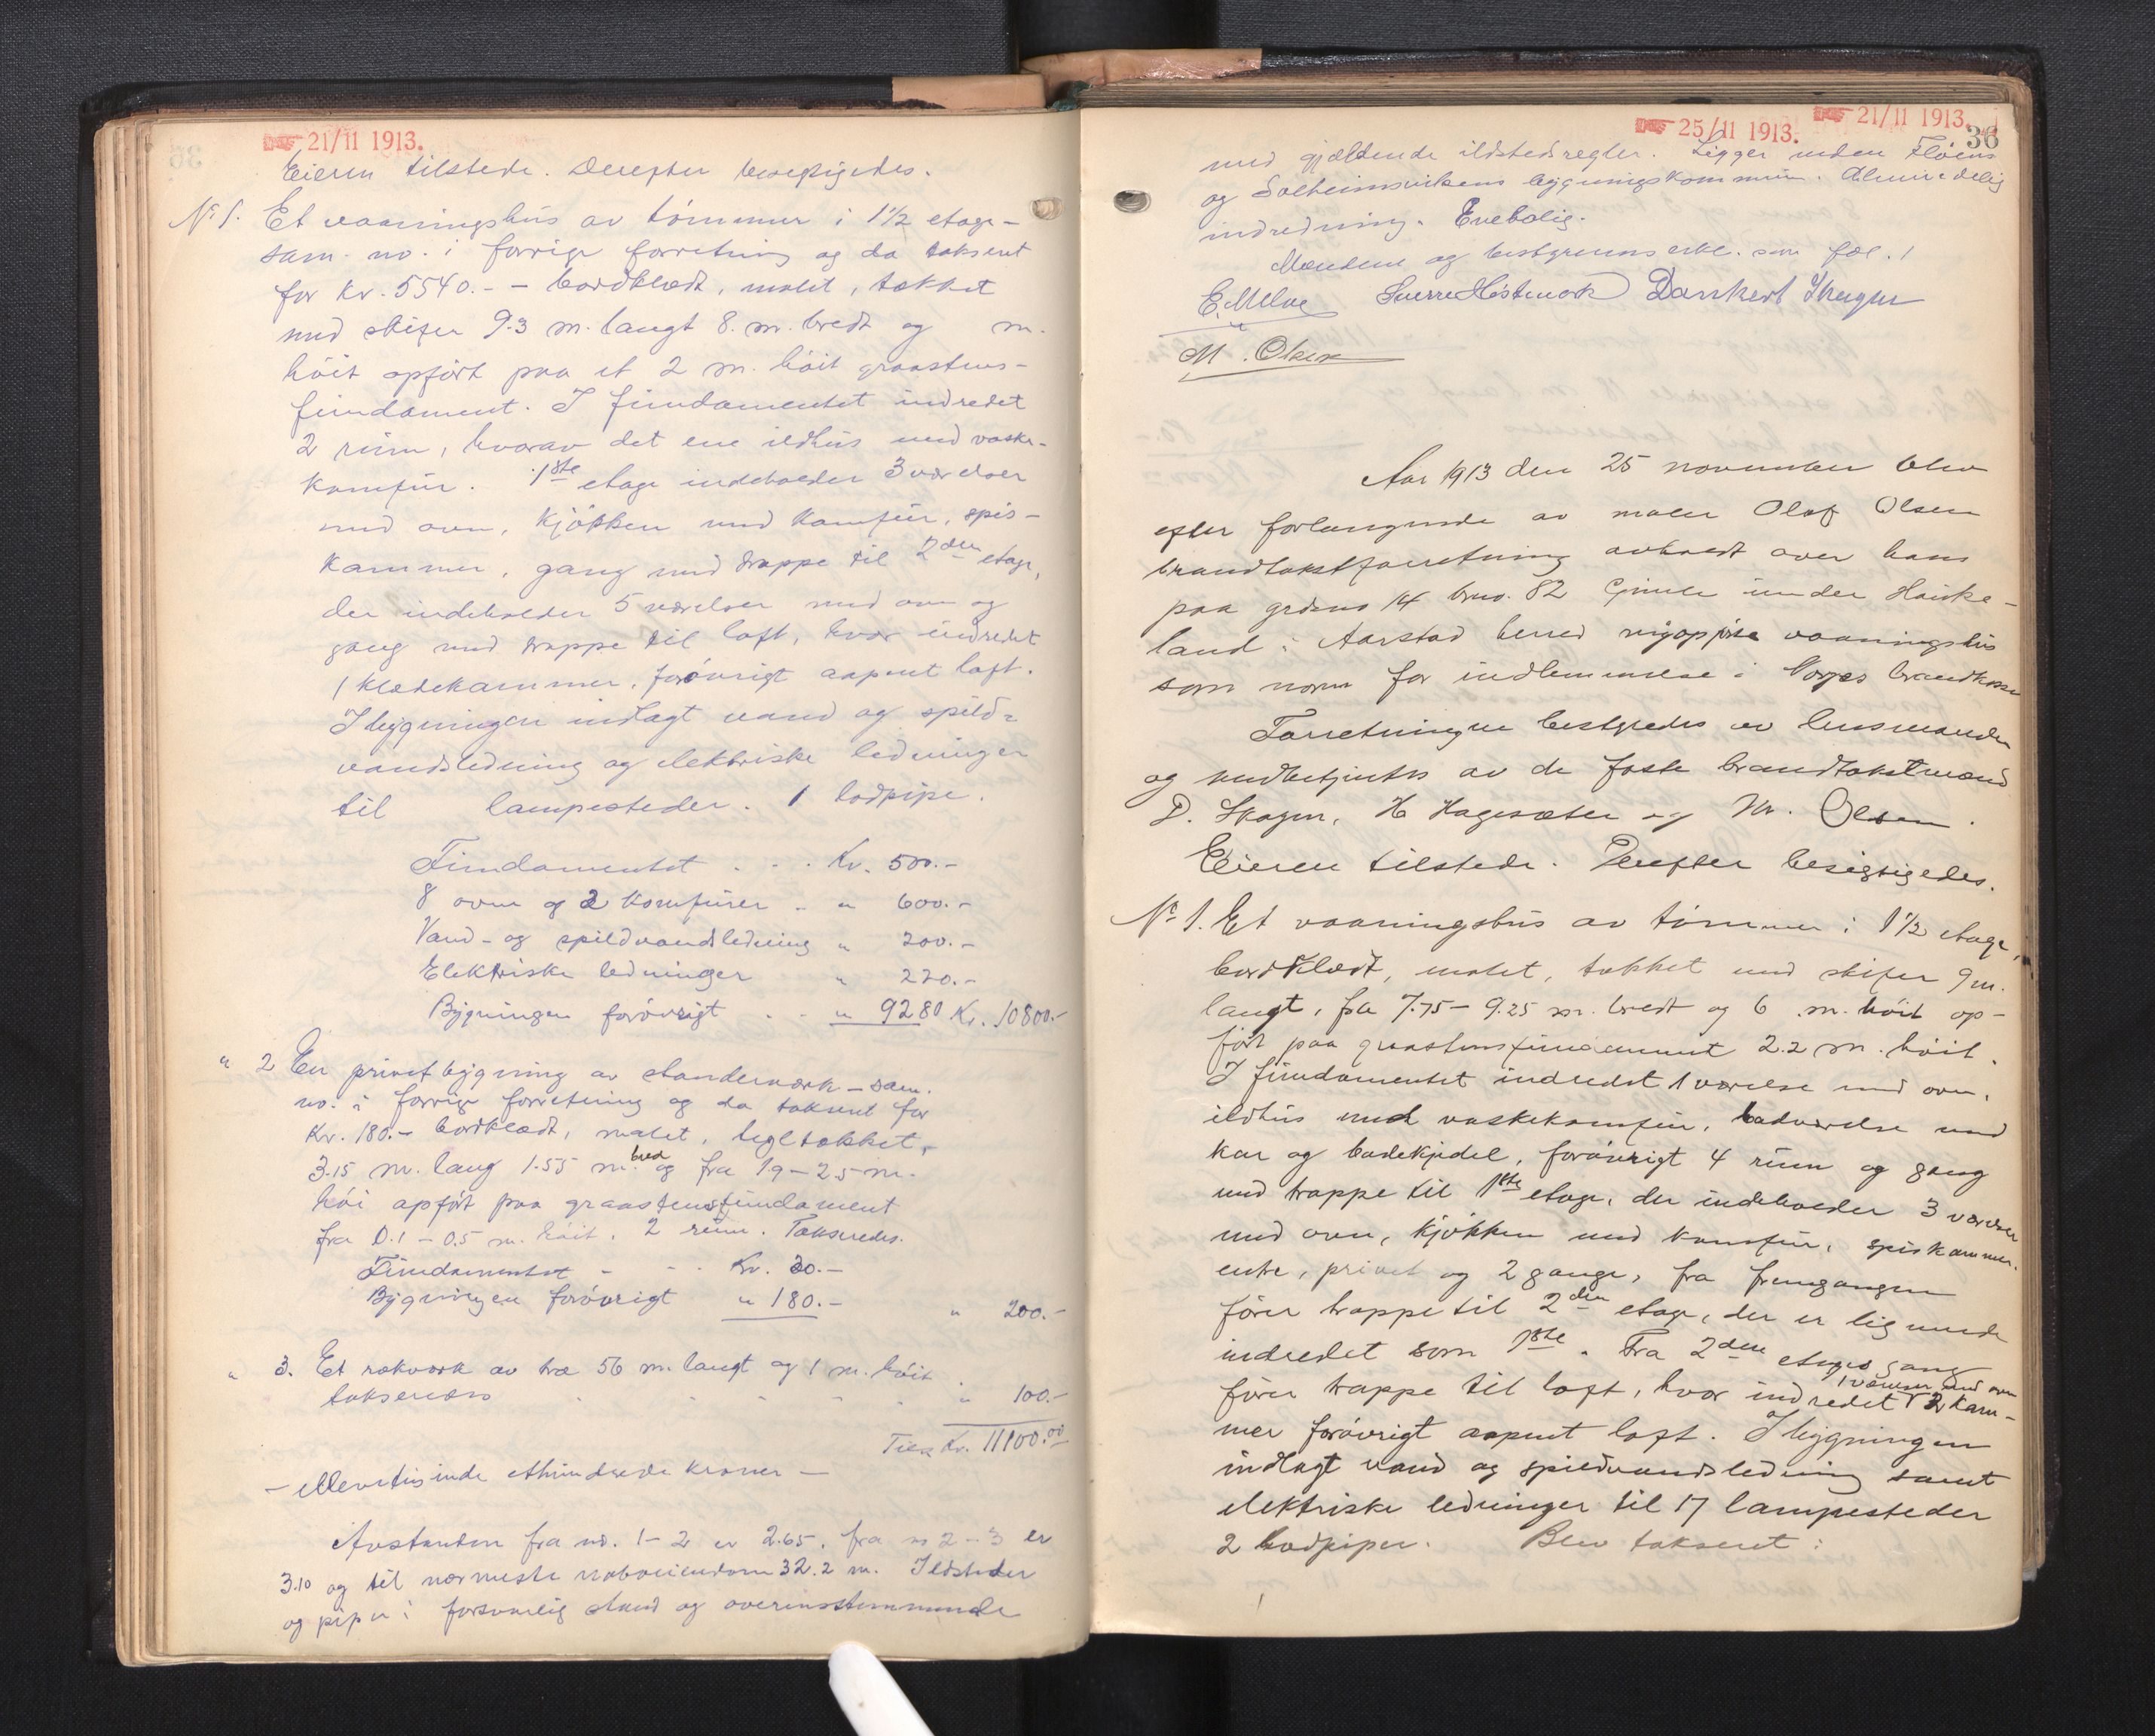 21/11 1913.
Eieren tilstede. Derefter besigtigedes.
No 1. Et vaaningshus av tømmer i 1 1/2 etage –
sam. no. i forrige forretning og da taksert
for kr. 5540.- – bordklædt, malet, tækket
med skifer 9.3 m. langt 8. m. bredt og m.
høit opført paa et 2 m. høit graastens-
fundament. I fundamentet indredet
2 rum, hvorav det ene ildhus med vaske-
komfur. 1ste etage indeholder 3 værelser
med ovn, kjøkken med komfur, spis-
kammer, gang med trappe til 2den etage,
der indeholder 5 værelser med ovn og
gang med trappe til loft, hvor indredet
1 klædekammer, forøvrigt aapent loft.
I bygningen indlagt vand og spild-
vandsledning og elektriske ledninger
til lampesteder. 1 lodpipe.
Fundamentet . . . Kr. 500.-
8 ovne og 2 komfurer . " 600.-
Vand- og spildvandsledning " 200.-
Elektriske ledninger " 220.-
Bygningen forøvrigt . . " 9280 Kr. 10800.-
" 2 En privetbygning av standerværk – sam.
no. i forrige forretning og da taksert for
Kr. 180.- bordklædt, malet, tegltækket,
3.15 m. lang 1.55 m. bred og fra 1.9 – 2.5 m.
høi opført paa graastensfundament
fra 0.1 – 0.5 m. høit. 2 rum. Takseredes.
Fundamentet - - - Kr. 20.-
Bygningen forøvrigt " 180.- " 200.-
" 3. Et rækværk av træ 56 m. langt og 1 m. høit
" 100.-
Tils. Kr. 11100.00
– ellevetusinde ethundrede kroner –
Avstanden fra no. 1 – 2 er 2.65, fra no 2 – 3 er
3.10 og til nærmeste naboeiendom 32.2 m. Ildsteder
og piper i forsvarlig stand og overensstemmende
25/11 1913. 21/11 1913.
36
med gjældende ildstedsregler. Ligger uden Fløens
og Solheimsvikens bygningskommune. Almindelig
indredning. Enebolig.
Mændene og bestyrerens erkl. som fol. 1
E. Melve Sverre Høstmark Dankert Skagen
M. Olsen
Aar 1913 den 25 november blev
efter forlangende av maler Olaf Olsen
brandtakstforretning avholdt over hans
paa grdsno 14 brno. 82 Gimle under Hauke-
land i Aarstad herred nyopførte vaaningshus
som norm for indlemmelse i Norges brandkasse
Forretningen bestyredes av lensmanden
og medbetjentes av de faste brandtakstmænd
D. Skagen, H Hagesæter og M. Olsen.
Eieren tilstede. Derefter besigtigedes.
No 1. Et vaaningshus av tømmer i 1 1/2 etage,
bordklædt, malet, tækket med skifer 9 m.
langt, fra 7.75 – 9.25 m. bredt og 6 m. høit op-
ført paa graastensfundament 2.2 m. høit.
I fundamentet indredet 1 værelse med ovn,
ildhus med vaskekomfur, badværelse med
kar og badekjedel, forøvrigt 4 rum og gang
med trappe til 1ste etage, der indeholder 3 værelser
med ovn, kjøkken med komfur, spiskammer,
entre, privet og 2 gange, fra fremgangen
fører trappe til 2den etage, der er lignende
indredet som 1ste. Fra 2den etages gang
fører trappe til loft, hvor indredet 1 værelse med ovn 2 kam-
mer forøvrigt aapent loft. I bygningen
indlagt vand og spildvandsledning samt
elektriske ledninger til 17 lampesteder
2 lodpiper. Blev taksert: